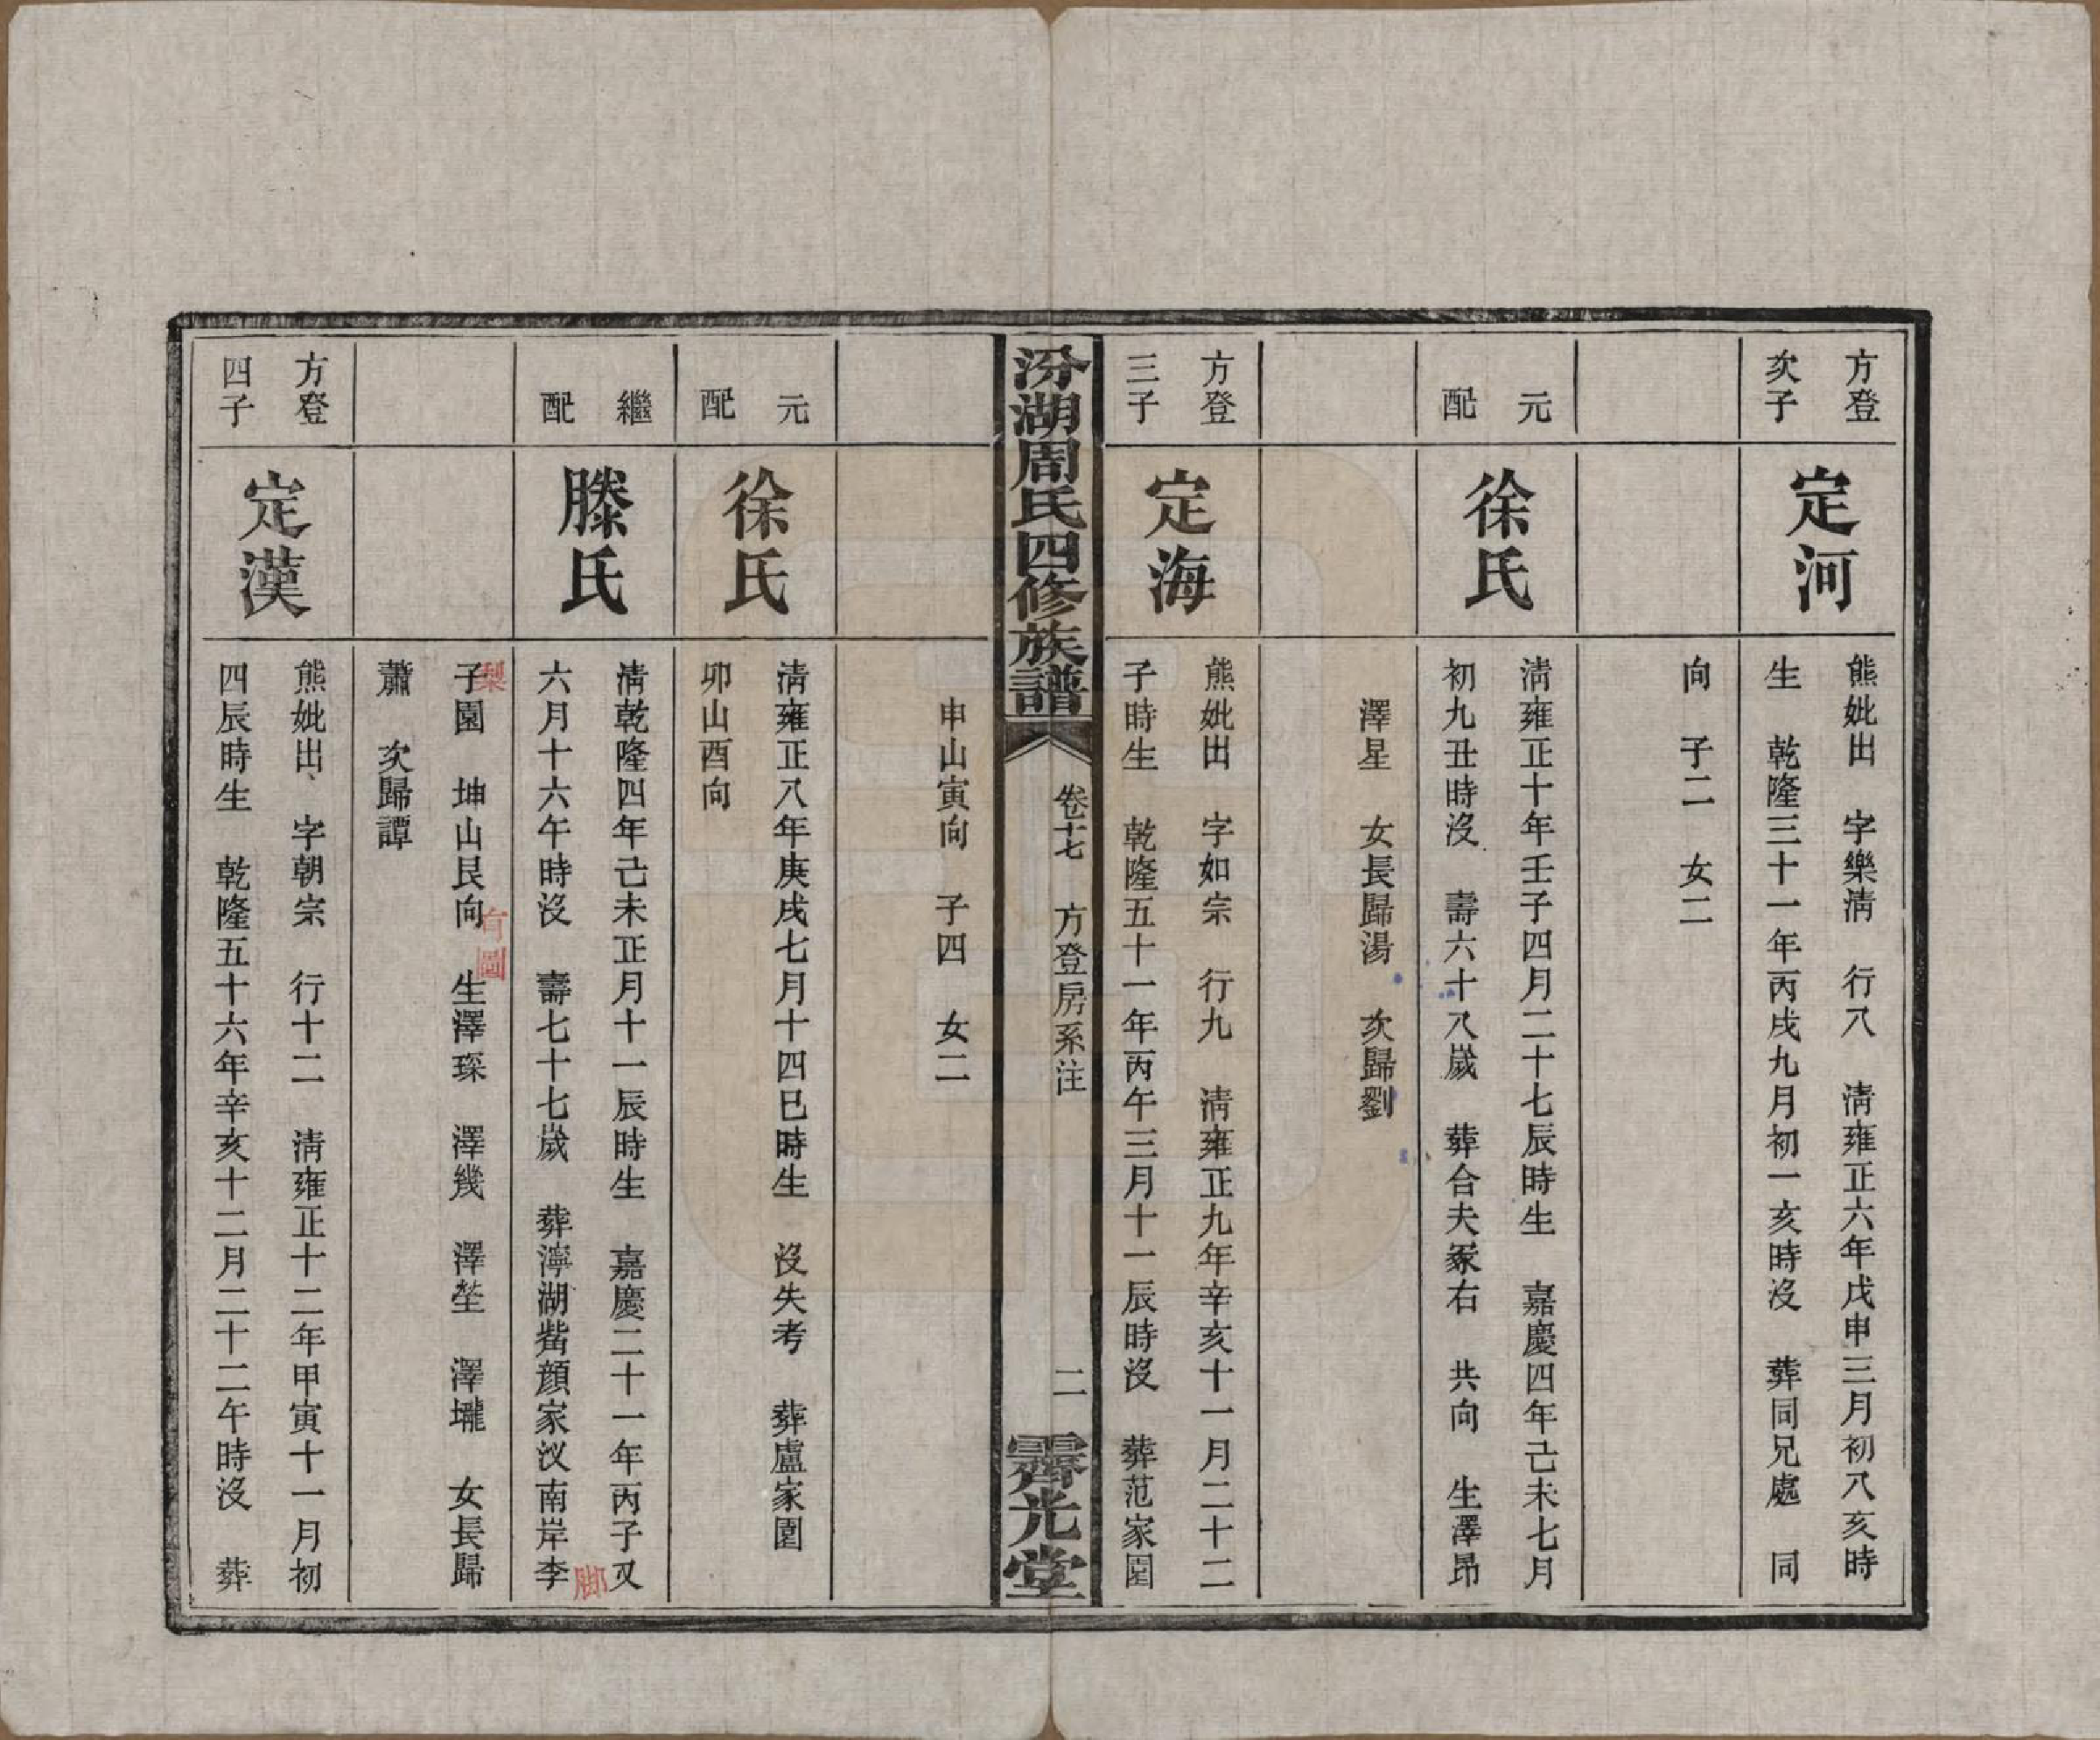 方登
次子
定河
熊妣出　字樂淸　行八　淸雍正六年戊申三月初八亥時
生　乾隆三十一年丙戌九月初一亥時沒　葬同兄處　同
向　子二　女二
元
配
徐氏
淸雍正十年壬子四月二十七辰時生　嘉慶四年己未七月
初九丑時沒　壽六十八歲　葬合夫冢右　共向　生澤昂
澤星　女長歸湯　次歸劉
方登
三子
定海
熊妣出　字如宗　行九　淸雍正九年辛亥十一月二十二
子時生　乾隆五十一年丙午三月十一辰時沒　葬范家園
汾湖周氏四修族譜
卷十七　方登房系注
二
霽光堂
申山寅向　子四　女二
元
配
徐氏
淸雍正八年庚戌七月十四巳時生　沒失考　葬盧家園
卯山酉向
繼
配
滕氏
淸乾隆四年己未正月十一辰時生　嘉慶二十一年丙子又
六月十六午時沒　壽七十七歲　葬濘湖觜顏家汊南岸李
脚
子園　坤山艮向　生澤琛　澤幾　澤埜　澤壠　女長歸
梨
有圖
蕭　次歸譚
方登
四子
定漢
熊妣出　字朝宗　行十二　淸雍正十二年甲寅十一月初
四辰時生　乾隆五十六年辛亥十二月二十二午時沒　葬